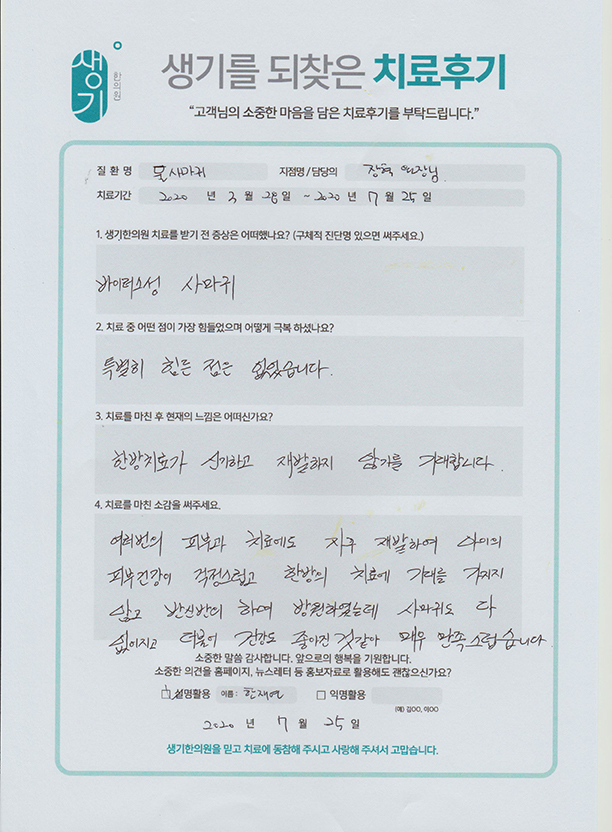 생기 한의원
생기를 되찾은 치료후기
“고객님의 소중한 마음을 담은 치료후기를 부탁드립니다.”
질 환 명 몸사마귀 지점명 / 담당의 장혁 원장님
치료기간 2020 년 3 월 28 일 ~ 2020 년 7 월 25 일
1. 생기한의원 치료를 받기 전 증상은 어떠했나요? (구체적 진단명 있으면 써주세요.)
바이러스성 사마귀
2. 치료 중 어떤 점이 가장 힘들었으며 어떻게 극복 하셨나요?
특별히 힘든 점은 없었습니다.
3. 치료를 마친 후 현재의 느낌은 어떠신가요?
한방치료가 신기하고 재발하지 않기를 기대합니다.
4. 치료를 마친 소감을 써주세요.
여러번의 피부과 치료에도 자주 재발하여 아이의
피부건강이 걱정스럽고 한방의 치료에 기대를 가지지
않고 반신반의 하며 방문하였는데 사마귀도 다
없어지고 더불어 건강도 좋아진 것같아 매우 만족스럽습니다
소중한 말씀 감사합니다. 앞으로의 행복을 기원합니다.
소중한 의견을 홈페이지, 뉴스레터 등 홍보자료로 활용해도 괜찮으신가요?
실명활용 이름 : 한재연 익명활용
(예) 김OO, 이OO
2020 년 7 월 25 일
생기한의원을 믿고 치료에 동참해 주시고 사랑해 주셔서 고맙습니다.